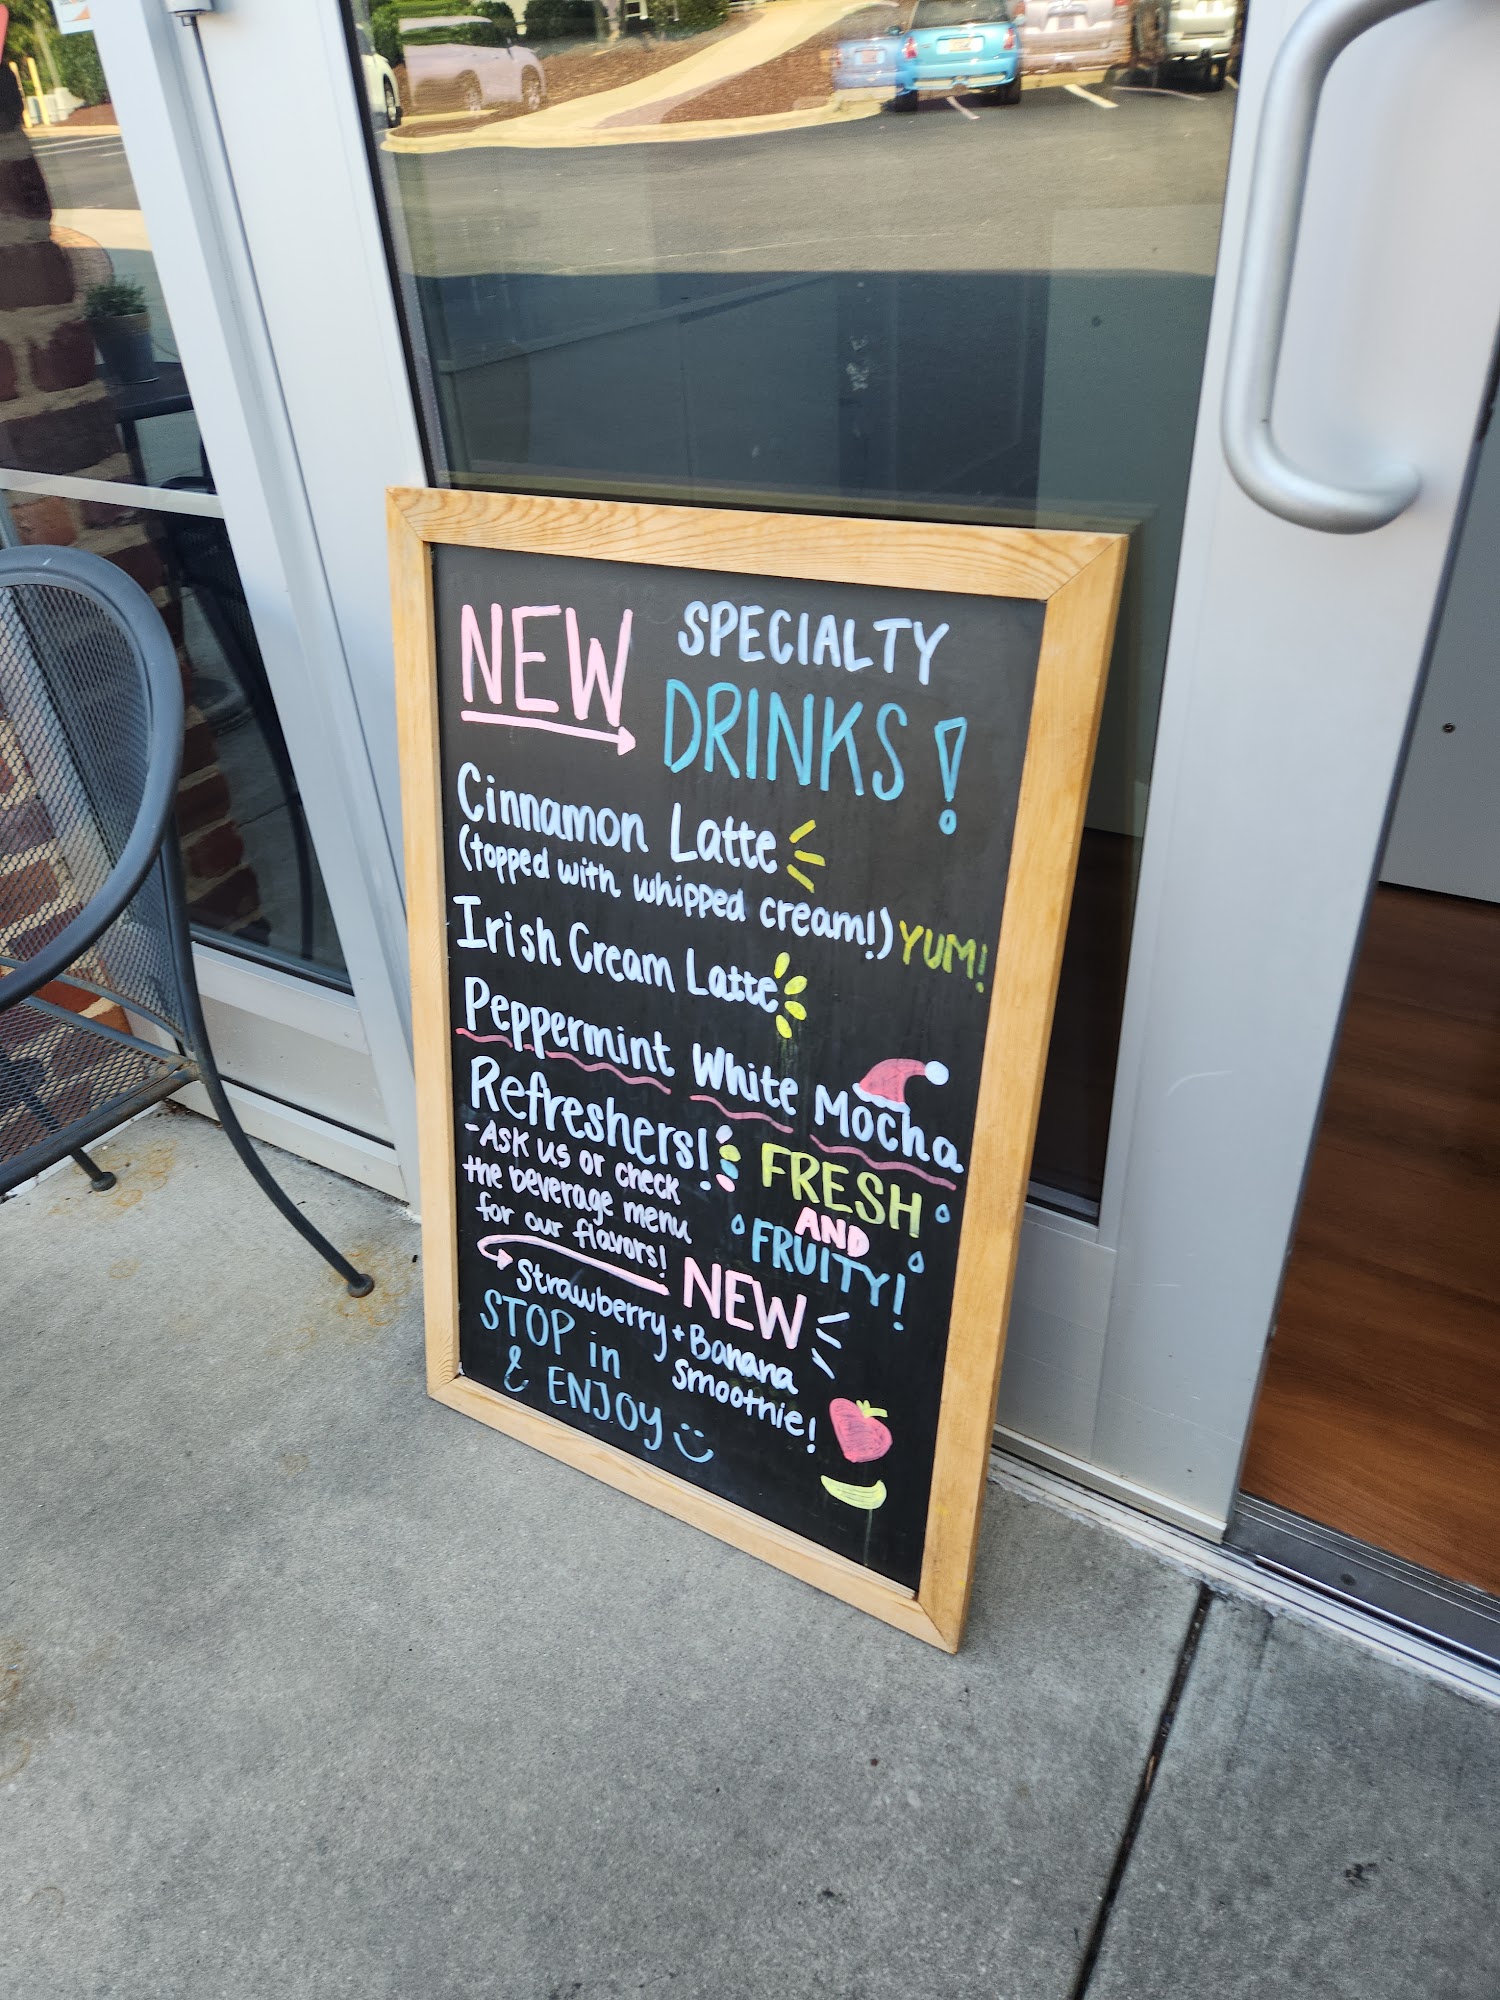 NEW SPECIALTY
DRINKS!
Cinnamon Latte
(topped with whipped cream!) YUM!
Irish Cream Latte
Peppermint White Mocha
Refreshers!
-ASK us or check
the beverage menu
for our flavors!
FRESH
AND
FRUITY!
NEW
Strawberry + Banana
Smoothie!
STOP in
& ENJOY